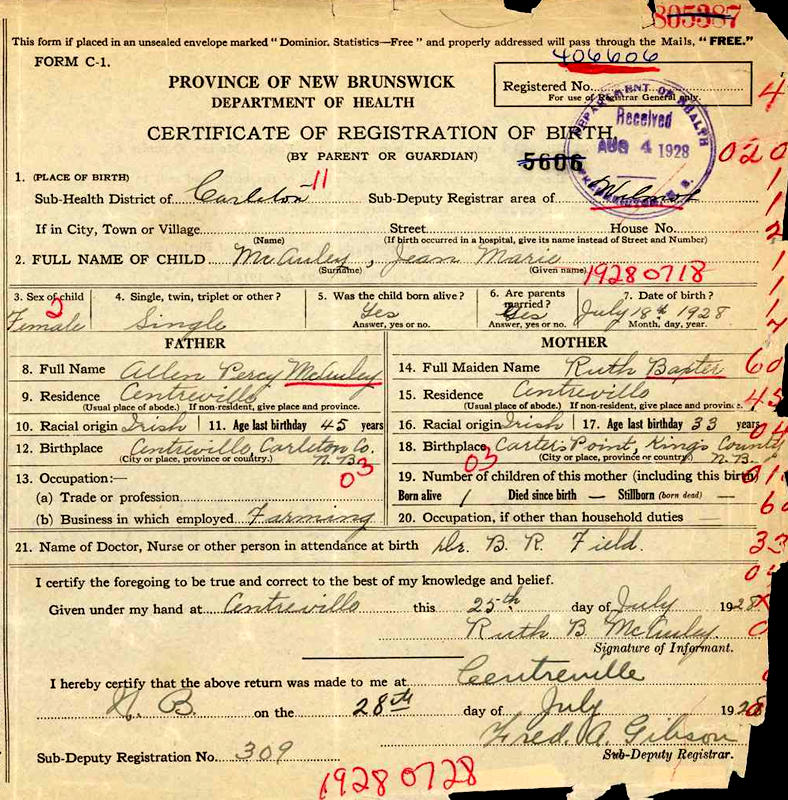 805387
This form if placed in an unsealed envelope marked "Dominior. Statistics—Free" and properly addressed will pass through the Mails, "FREE."
FORM C-1.
406606
PROVINCE OF NEW BRUNSWICK
DEPARTMENT OF HEALTH
Registered No.
For use of Registrar General only.
4
CERTIFICATE OF REGISTRATION OF BIRTH
(BY PARENT OR GUARDIAN)
5606
DEPARTMENT OF HEALTH
Received
AUG 4 1928
020
1. (PLACE OF BIRTH)
Sub-Health District of Carleton 11 Sub-Deputy Registrar area of
If in City, Town or Village Street House No.
(Name) (If birth occurred in a hospital, give its name instead of Street and Number)
2. FULL NAME OF CHILD McAuley, Jean Marie
(Surname) (Given name)
19280718
3. Sex of child 4. Single, twin, triplet or other? 5. Was the child born alive? 6. Are parents married? 7. Date of birth?
2 Female Single Yes Yes July 18th 1928
Answer, yes or no. Answer, yes or no. Month, day, year.
FATHER MOTHER
8. Full Name Allen Percy McAuley 14. Full Maiden Name Ruth Baxter 60
9. Residence Centreville 15. Residence Centreville 45
(Usual place of abode.) If non-resident, give place and province. (Usual place of abode.) If non-resident, give place and province.
10. Racial origin Irish 11. Age last birthday 45 years 16. Racial origin Irish 17. Age last birthday 33 years 04
12. Birthplace Centreville, Carleton Co. N.B. 18. Birthplace Carters Point, Kings County N.B.
(City or place, province or country.) 03 (City or place, province or country.) 03
13. Occupation:— 19. Number of children of this mother (including this birth) 01
(a) Trade or profession Born alive 1 Died since birth — Stillborn (born dead) — 6
(b) Business in which employed Farming 20. Occupation, if other than household duties
21. Name of Doctor, Nurse or other person in attendance at birth Dr. B. R. Field. 33
I certify the foregoing to be true and correct to the best of my knowledge and belief.
Given under my hand at Centreville this 25th day of July 1928
Ruth B. McAuley
Signature of Informant.
I hereby certify that the above return was made to me at Centreville
N. B. on the 28th day of July 1928
Fred. A. Gibson
Sub-Deputy Registrar.
Sub-Deputy Registration No. 309
19280728